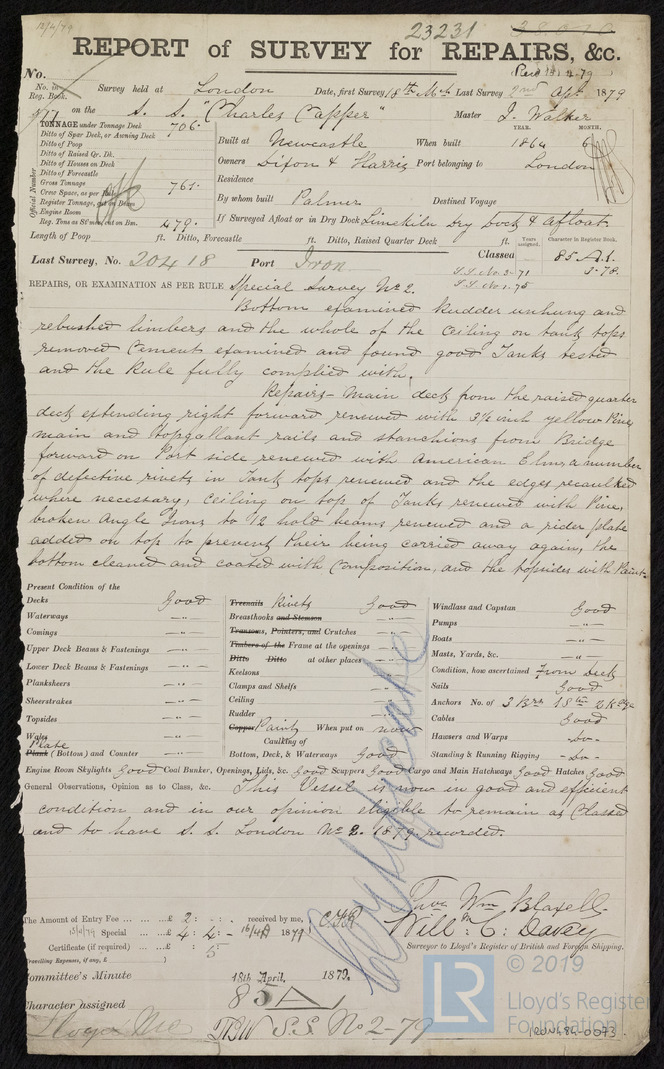 12/4/79
23231
REPORT of SURVEY for REPAIRS, &c.
No.
No. in Reg. Book. Survey held at London Date, first Survey 18th Mch Last Survey 2nd Apr 1879
on the S. S. "Charles Capper" Master J. Walker
TONNAGE under Tonnage Deck 706.
Ditto of Spar Deck, or Awning Deck
Ditto of Poop
Ditto of Raised Qr. Dk.
Ditto of Houses on Deck
Ditto of Forecastle
Gross Tonnage 761.
Crew Space, as per
Register Tonnage, cut on Beam
Engine Room
Reg. Tons as St'mer, cut on Bm. 479.
Official Number
YEAR. MONTH.
Built at Newcastle When built 1864 6
Owners Dixon & Harris Port belonging to London
Residence
By whom built Palmer Destined Voyage
If Surveyed Afloat or in Dry Dock Limekiln Dry Dock & Afloat
Length of Poop ft. Ditto, Forecastle ft. Ditto, Raised Quarter Deck ft. Years assigned. Character in Register Book.
Last Survey, No. 20418 Port Iron Classed 85.A.1.
S.S. No. 3-71 3-78.
S.S. No. 1-75
REPAIRS, OR EXAMINATION AS PER RULE Special Survey No 2.
Bottom examined Rudder unhung and
rebushed limbers and the whole of the ceiling on tank tops
removed Cement examined and found good Tanks tested
and the Rule fully complied with,
Repairs - Main deck from the raised quarter
deck extending right forward renewed with 3½ inch yellow Pine,
main and topgallant rails and stanchions from Bridge
forward on Port side renewed with American Elm, a number
of defective rivets in Tank tops renewed and the edges recaulked
where necessary, ceiling on top of Tanks renewed with Pine,
broken Angle Irons to 1/2 hold beams renewed and a rider plate
added on top to prevent their being carried away again, the
bottom cleaned and coated with Composition, and the topsides with Paint.
Present Condition of the
Decks Good
Waterways -"-
Comings -"-
Upper Deck Beams & Fastenings -"-
Lower Deck Beams & Fastenings -"-
Planksheers -"-
Sheerstrakes -"-
Topsides -"-
Wales -"-
Plate
Plank (Bottom) and Counter -"-
Treenails Rivets Good
Breasthooks and Stemson -"-
Transoms, Pointers, and Crutches -"-
Timbers of the Frame at the openings -"-
Ditto Ditto at other places -"-
Keelsons -"-
Clamps and Shelfs -"-
Ceiling -"-
Rudder -"-
Copper Paint When put on now
Caulking of
Bottom, Deck, & Waterways Good
Windlass and Capstan Good
Pumps -"-
Boats -"-
Masts, Yards, &c. -"-
Condition, how ascertained From deck
Sails Good
Anchors No. of 3 Brs 1 Stm 2 Kedge
Cables Good
Hawsers and Warps -Do-
Standing & Running Rigging -Do-
Engine Room Skylights Good Coal Bunker, Openings, Lids, &c. Good Scuppers Good Cargo and Main Hatchways Good Hatches Good
General Observations, Opinion as to Class, &c. This Vessel is now in good and efficient
condition and in our opinion eligible to remain as Classed
and to have S. S. London No 2. 1879 recorded.
Wm Blaxell
Will: C: Davey
Surveyor to Lloyd's Register of British and Foreign Shipping.
The Amount of Entry Fee ... £ 2 : - : - received by me,
Special ... £ 4 : 4 : - 16/4/ 1879
Certificate (if required) ... £ : 5
Travelling Expenses, if any, £
Committee's Minute 18th April, 1879.
Character assigned 85 A 1
S.S. No 2-79
© 2019
LR
Lloyd's Register
Foundation
IRON484-0073